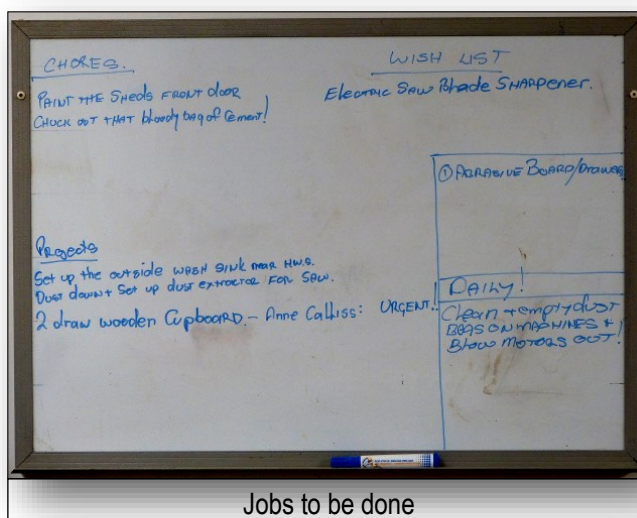 CHORES.
PAINT THE SHEDS FRONT DOOR
CHUCK OUT THAT bloody bag of Cement!
WISH LIST
Electric Saw Blade SHARPENER.
① ABRASIVE BOARD/Drawers
Projects
Set up the outside WASH SINK near H.W.S.
Dust down + Set up dust extractor FOR SAW.
2 draw wooden CupBOARD. – Anne Calliss: URGENT!
DAILY!
Clean + empty dust
BAGS ON MACHINES +
Blow MOTORS OUT!
Jobs to be done